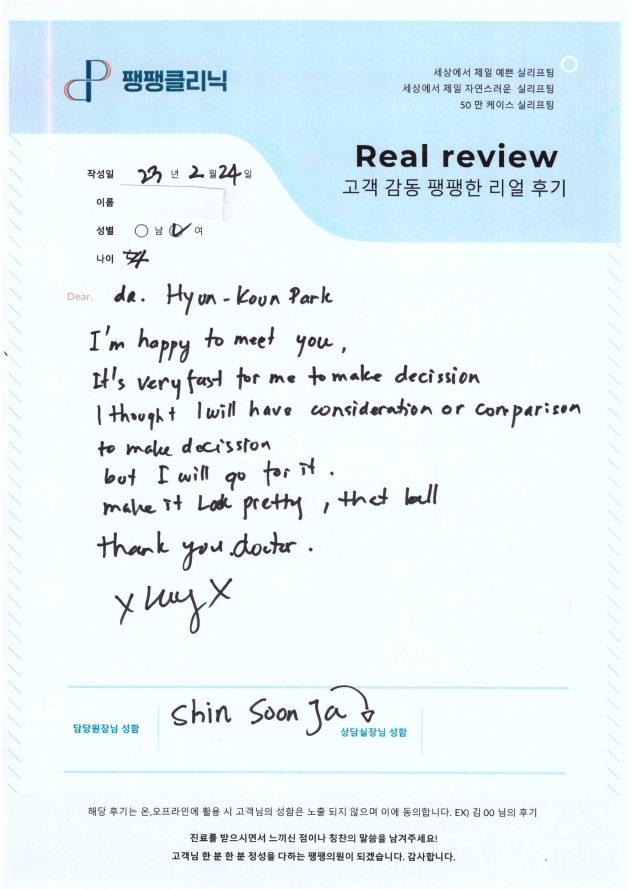 팽팽클리닉
세상에서 제일 예쁜 실리프팅
세상에서 제일 자연스러운 실리프팅
50 만 케이스 실리프팅
Real review
고객 감동 팽팽한 리얼 후기
작성일 23 년 2 월 24 일
이름
성별 남 여
나이 54
Dear. dr. Hyun-Koun Park
I'm happy to meet you,
It's very fast for me to make decission
I thought I will have consideration or comparison
to make decission
but I will go for it.
make it look pretty, that ball
thank you.doctor.
X X
담당원장님 성함 Shin Soon Ja 상담실장님 성함
해당 후기는 온,오프라인에 활용 시 고객님의 성함은 노출 되지 않으며 이에 동의합니다. EX) 김 00 님의 후기
진료를 받으시면서 느끼신 점이나 칭찬의 말씀을 남겨주세요!
고객님 한 분 한 분 정성을 다하는 팽팽의원이 되겠습니다. 감사합니다.